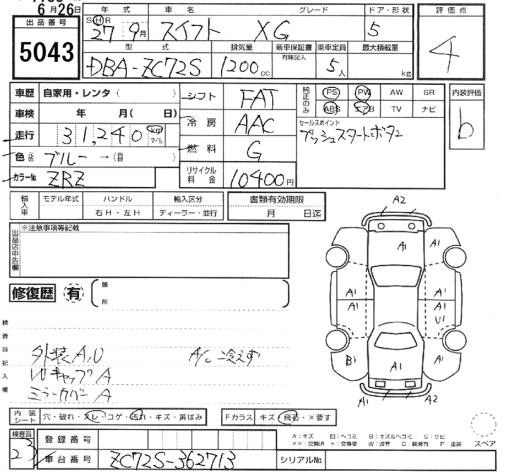 6月26日
出品番号
5043
年式 車名 グレード ドア・形状
SH R 27年 9月 スイフト XG 5
型式 排気量 新車保証書 乗車定員 最大積載量
有無記入
DBA-ZC72S 1200cc 5人 kg
評価点
4
車歴 自家用・レンタ ( )
車検 年 月(日)
走行 31,240 km マイル
色 ブルー →(替 )
カラーNo ZRZ
シフト FAT
冷房 AAC
燃料 G
リサイクル料金 10400円
純正のみ PS PW AW SR
ABS エアB TV ナビ
セールスポイント
プッシュスタートボタン
内装評価
b
輸入車 モデル年式 ハンドル 輸入区分
右H・左H ディーラー・並行
書類有効期限
月 日迄
出品店申告欄 ※注意事項等記載
修復歴 有 箇所
検査員記入欄
外装A,U A/C 冷えず
Wキャップ A
ミラーカバー A
A2
A1
A1 A1
A1 A1
A1 U1
B1 A1 A1
A2
内装シート 穴・破れ・スレ・コゲ・汚れ・キズ・黄ばみ
Fガラス キズ・飛石・×要す
検査員 23
登録番号
車台番号 ZC72S-362713
シリアルNo.
A:キズ U:ヘコミ B:キズ&ヘコミ S:サビ
スペア